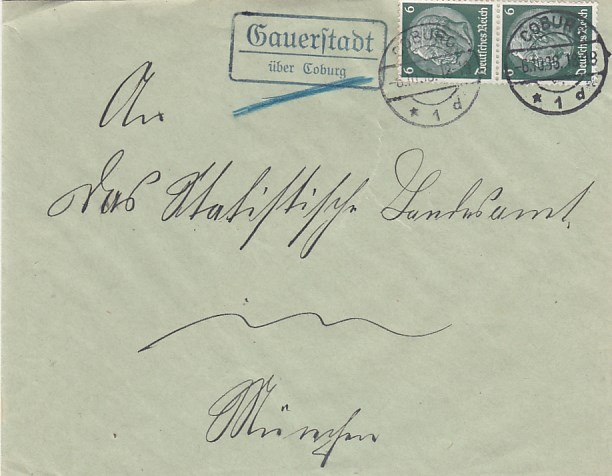 Gauerstadt
über Coburg
6 Deutsches Reich
6 Deutsches Reich
COBURG
* 1 d
COBURG
* 1 d
An
das Statistische Landesamt
in
München